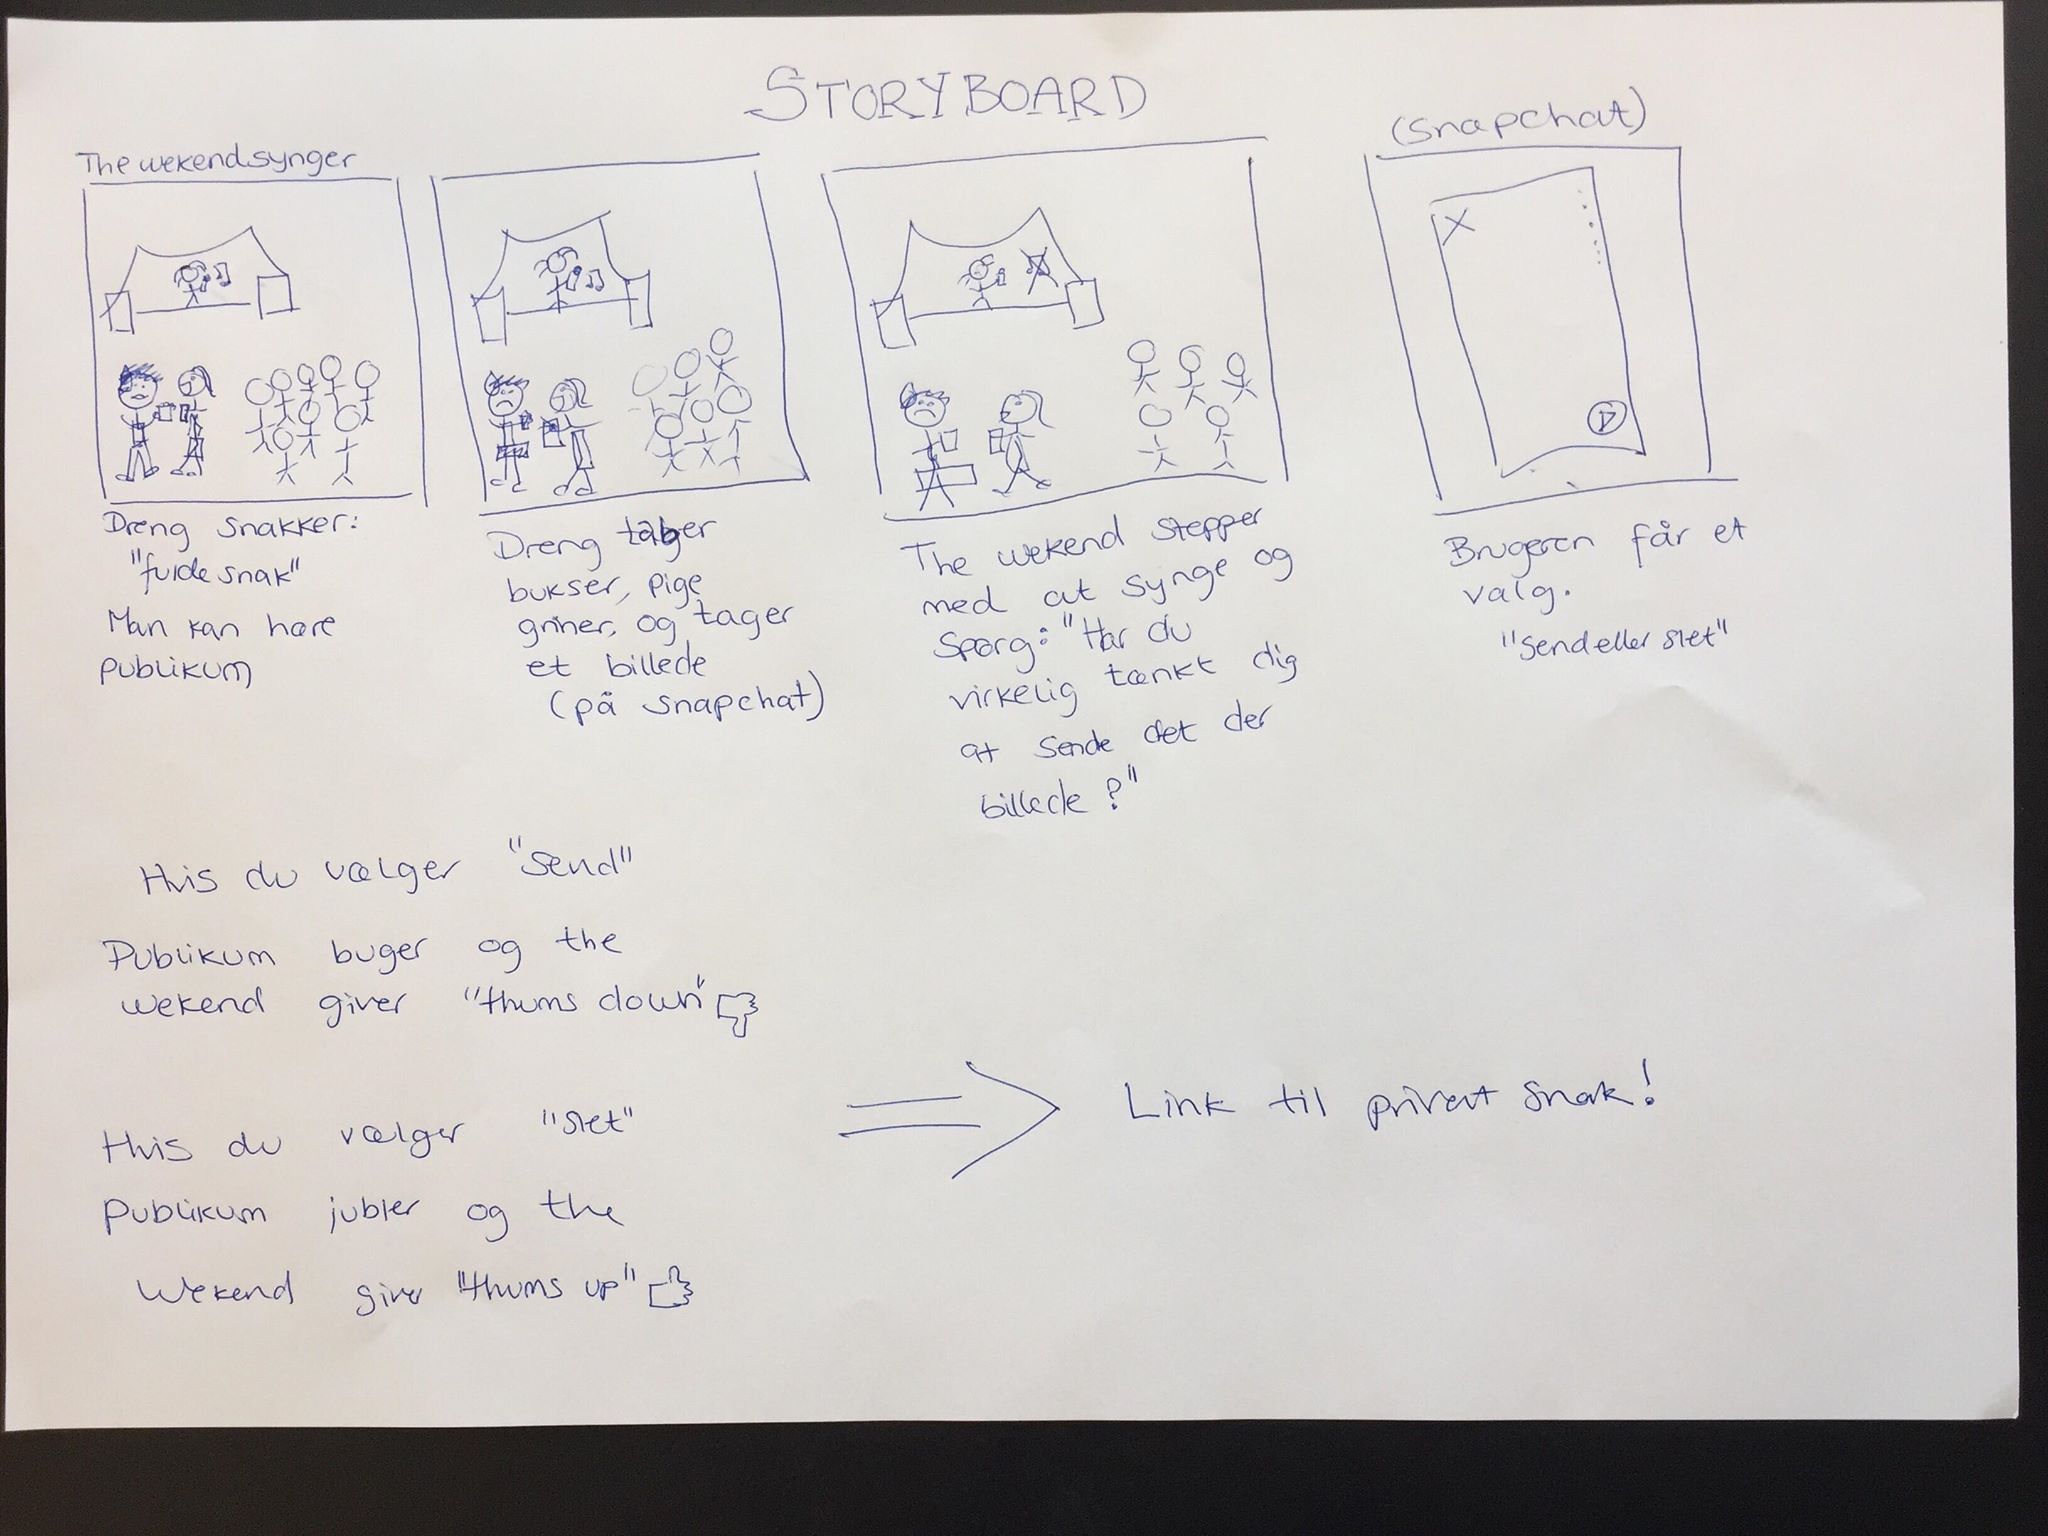 STORYBOARD
The wekend synger
(snapchat)
Dreng snakker:
"fulde snak"
Man kan høre
publikum
Dreng taber
bukser, pige
griner, og tager
et billede
(på snapchat)
The wekend stepper
med at synge og
spørg: "Har du
virkelig tænkt dig
at sende det der
billede?"
Brugeren får et
valg.
"Send eller slet"
Hvis du vælger "send"
Publikum buger og the
wekend giver "thums down"
Hvis du vælger "slet"
publikum jubler og the
Wekend giver "thums up"
Link til privat snak!